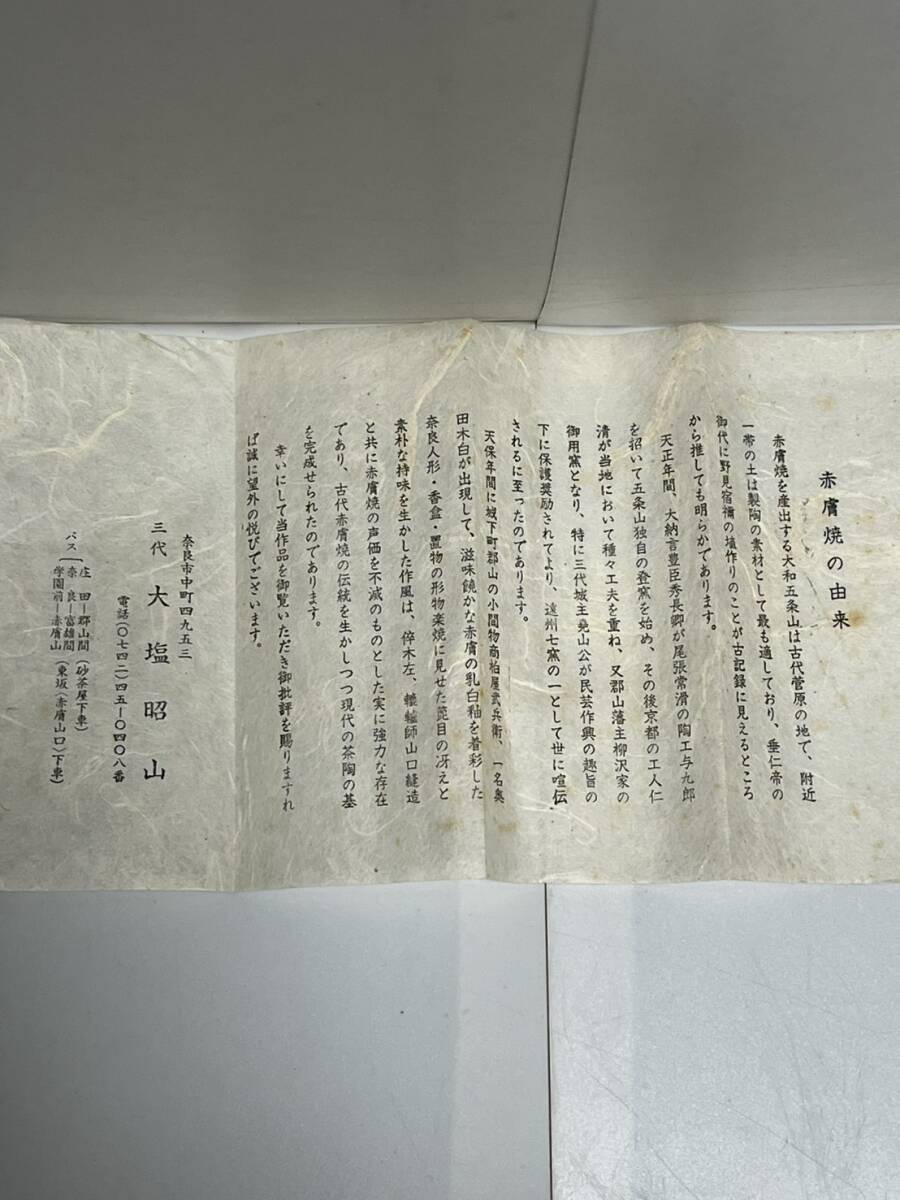 赤膚焼の由来
赤膚焼を産出する大和五条山は古代菅原の地で、附近
一帯の土は製陶の素材として最も適しており、垂仁帝の
御代に野見宿禰の埴作りのことが古記録に見えるところ
から推しても明らかであります。
天正年間、大納言豊臣秀長卿が尾張常滑の陶工与九郎
を招いて五条山独自の登窯を始め、その後京都の工人仁
清が当地において種々工夫を重ね、又郡山藩主柳沢家の
御用窯となり、特に三代城主堯山公が民芸作興の趣旨の
下に保護奨励されてより、遠州七窯の一として世に喧伝
されるに至ったのであります。
天保年間に城下町郡山の小間物商柏屋武兵衛、一名奥
田木白が出現して、滋味饒かな赤膚の乳白釉を着彩した
奈良人形・香盒・置物の形物楽焼に見せた箆目の冴えと
素朴な持味を生かした作風は、倅木左、轆轤師山口縫造
と共に赤膚焼の声価を不滅のものとした実に強力な存在
であり、古代赤膚焼の伝統を生かしつつ現代の茶陶の基
を完成せられたのであります。
幸いにして当作品を御覧いただき御批評を賜りますれ
ば誠に望外の悦びでございます。
奈良市中町四九五三
三代 大塩昭山
電話(〇七四二)四五-〇四〇八番
バス
庄田-郡山間(砂茶屋下車)
奈良-富雄間
学園前-赤膚山(東坂(赤膚山口)下車)